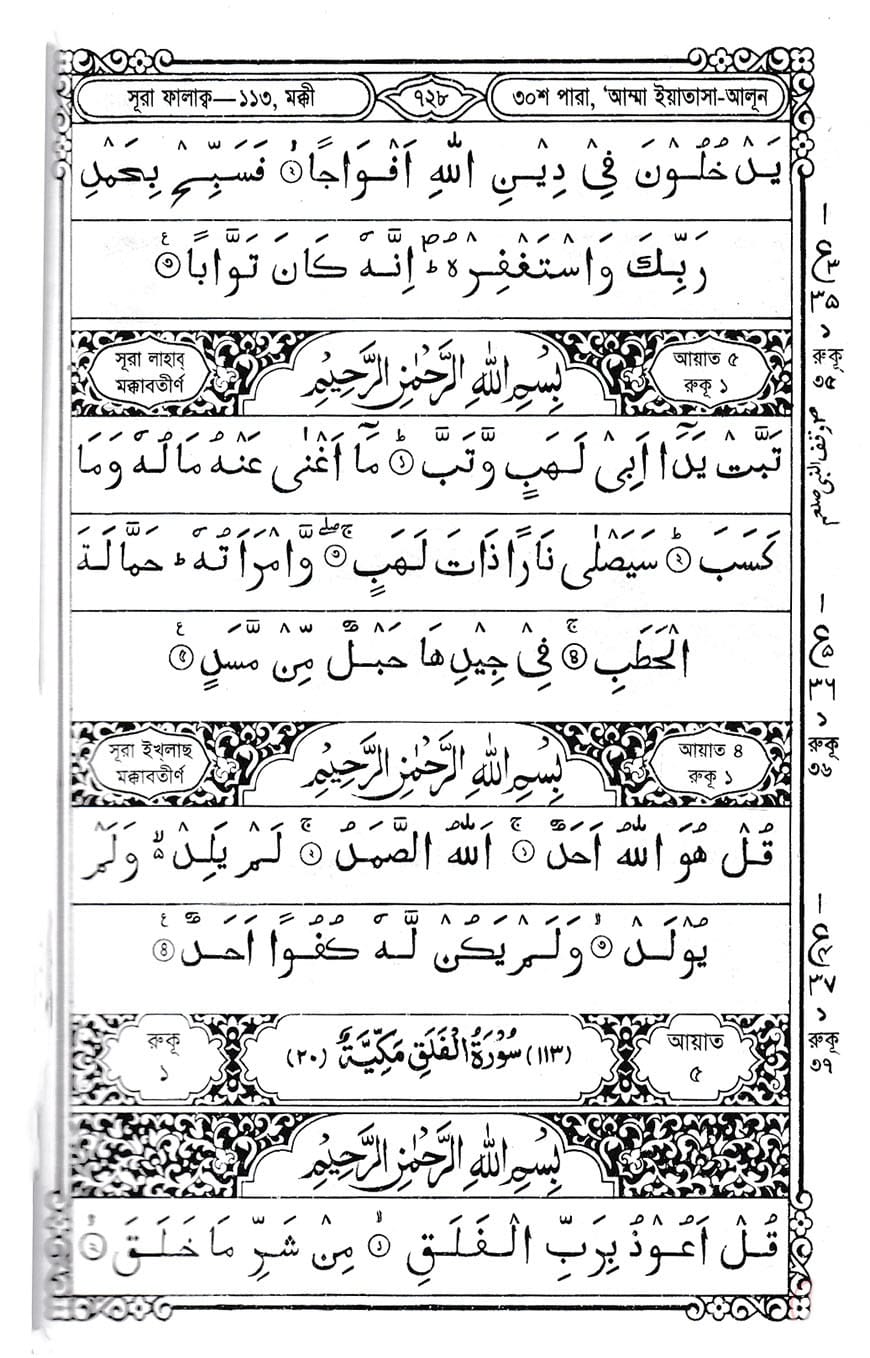 সূরা ফালাক্ব—১১৩, মক্কী
৭২৮
৩০শ পারা, ‘আম্মা ইয়াতাসা-আলূন
يَدْخُلُوْنَ فِيْ دِيْنِ اللّٰهِ اَفْوَاجًا ۙ ২ فَسَبِّحْ بِحَمْدِ
رَبِّكَ وَاسْتَغْفِرْهُ ؕ اِنَّهٗ كَانَ تَوَّابًا ৩ ع
সূরা লাহাব্
মক্কাবতীর্ণ
بِسْمِ اللهِ الرَّحْمٰنِ الرَّحِيْمِ
আয়াত ৫
রুকূ ১
تَبَّتْ يَدَاۤ اَبِيْ لَهَبٍ وَّتَبَّ ؕ ১ مَاۤ اَغْنٰى عَنْهُ مَالُهٗ وَمَا
كَسَبَ ؕ ২ سَيَصْلٰى نَارًا ذَاتَ لَهَبٍ ۚۖ ৩ وَّامْرَاَتُهٗ ؕ حَمَّالَةَ
الْحَطَبِ ۚ ৪ فِيْ جِيْدِهَا حَبْلٌ مِّنْ مَّسَدٍ ৫ ع
সূরা ইখ্‌লাছ
মক্কাবতীর্ণ
بِسْمِ اللهِ الرَّحْمٰنِ الرَّحِيْمِ
আয়াত ৪
রুকূ ১
قُلْ هُوَ اللّٰهُ اَحَدٌ ۚ ১ اَللّٰهُ الصَّمَدُ ۚ ২ لَمْ يَلِدْ ۙ۬ وَلَمْ
يُوْلَدْ ۙ ৩ وَلَمْ يَكُنْ لَّهٗ كُفُوًا اَحَدٌ ৪ ع
রুকূ
১
(۱۱۳) سُوْرَةُ الْفَلَقِ مَكِّيَّةٌ (۲۰)
আয়াত
৫
بِسْمِ اللهِ الرَّحْمٰنِ الرَّحِيْمِ
قُلْ اَعُوْذُ بِرَبِّ الْفَلَقِ ۙ ১ مِنْ شَرِّ مَا خَلَقَ ۙ ২
ع
৩৫
রুকূ
৩৫
وقف النبى صلعم
ع
৩৬
রুকূ
৩৬
ع
রুকূ
৩৭